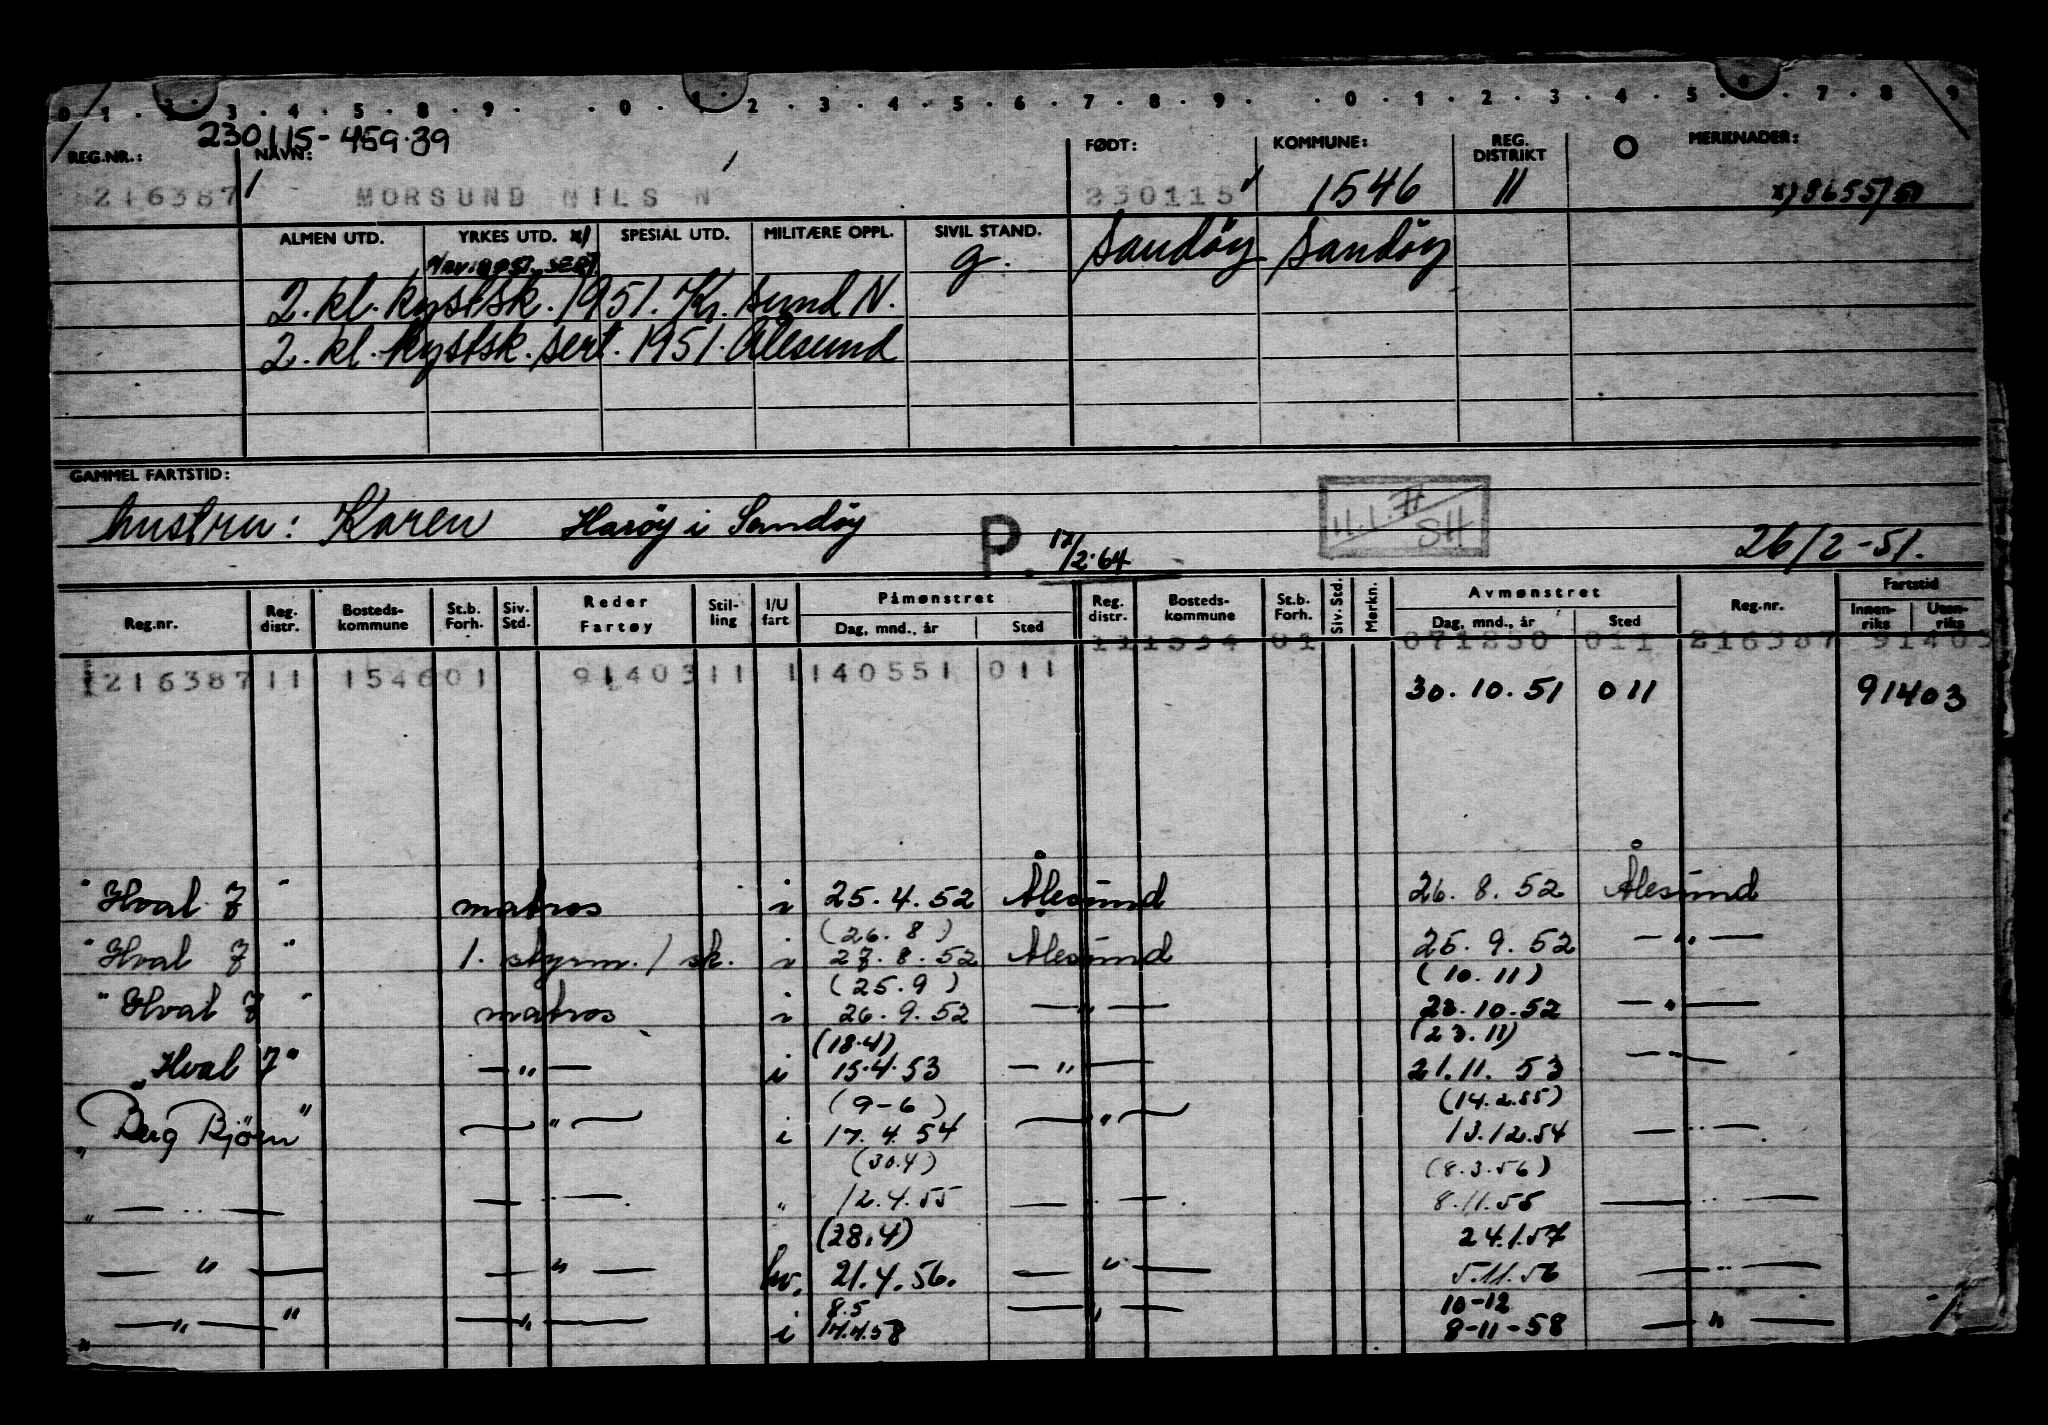 0 1 . 2 . 3 . 4 . 5 . 8 . 9 . . 0 . 1 . 2 . 3 . 4 . 5 . 6 . 7 . 8 . 9 . . 0 . 1 . 2 . 3 . 4 . 5 . 6 . 7 . 8 . 9
230115-459.39
REG.NR.: NAVN: FØDT: KOMMUNE: REG. DISTRIKT MERKNADER:
216387 MORSUND NILS N 230115 1546 11 x) 9655/51
ALMEN UTD. YRKES UTD. x) SPESIAL UTD. MILITÆRE OPPL. SIVIL STAND.
g. Sandöy Sandöy
2. kl. kystsk. 1951. Kr. sund N.
2. kl. kystsk. sert. 1951. Ålesund
GAMMEL FARTSTID:
hustru: Karen Haröy i Sandöy P. 17/2.64 SH 26/2-51.
Reg.nr. Reg. distr. Bosteds- kommune St.b. Forh. Siv. Std. Reder Fartøy Stil- ling I/U fart Påmønstret Dag, mnd., år Sted Reg. distr. Bosteds- kommune St.b. Forh. Siv. Std. Merkn. Avmønstret Dag, mnd., år Sted Reg.nr. Fartstid Innen- riks Uten- riks
11 1534 01 071250 011 216387 91403
1216387 11 1546 01 91403 11 1 140551 011
30.10.51 011 91403
"Hval 7" matros i 25.4.52 Ålesund 26.8.52 Ålesund
(26.8)
"Hval 7" 1. styrm./sk. i 27.8.52 Ålesund 25.9.52 — " —
(25.9) (10.11)
"Hval 7" matros i 26.9.52 — " — 23.10.52 — " —
(18.4) (23.11)
"Hval 7" — " — i 15.4.53 — " — 21.11.53 — " —
(9-6) (14.2.55)
"Berg Bjørn" — " — i 17.4.54 — " — 13.12.54 — " —
(30.4) (8.3.56)
" — " — — " — " 12.4.55 — " — 8.11.55 — " —
(28.4) 24.1.57
— " — — " — 21.4.56. — " — 5.11.56 — " —
8.5 10-12
" — " — " — " — i 14.4.58 — " — 8-11-58 — " —